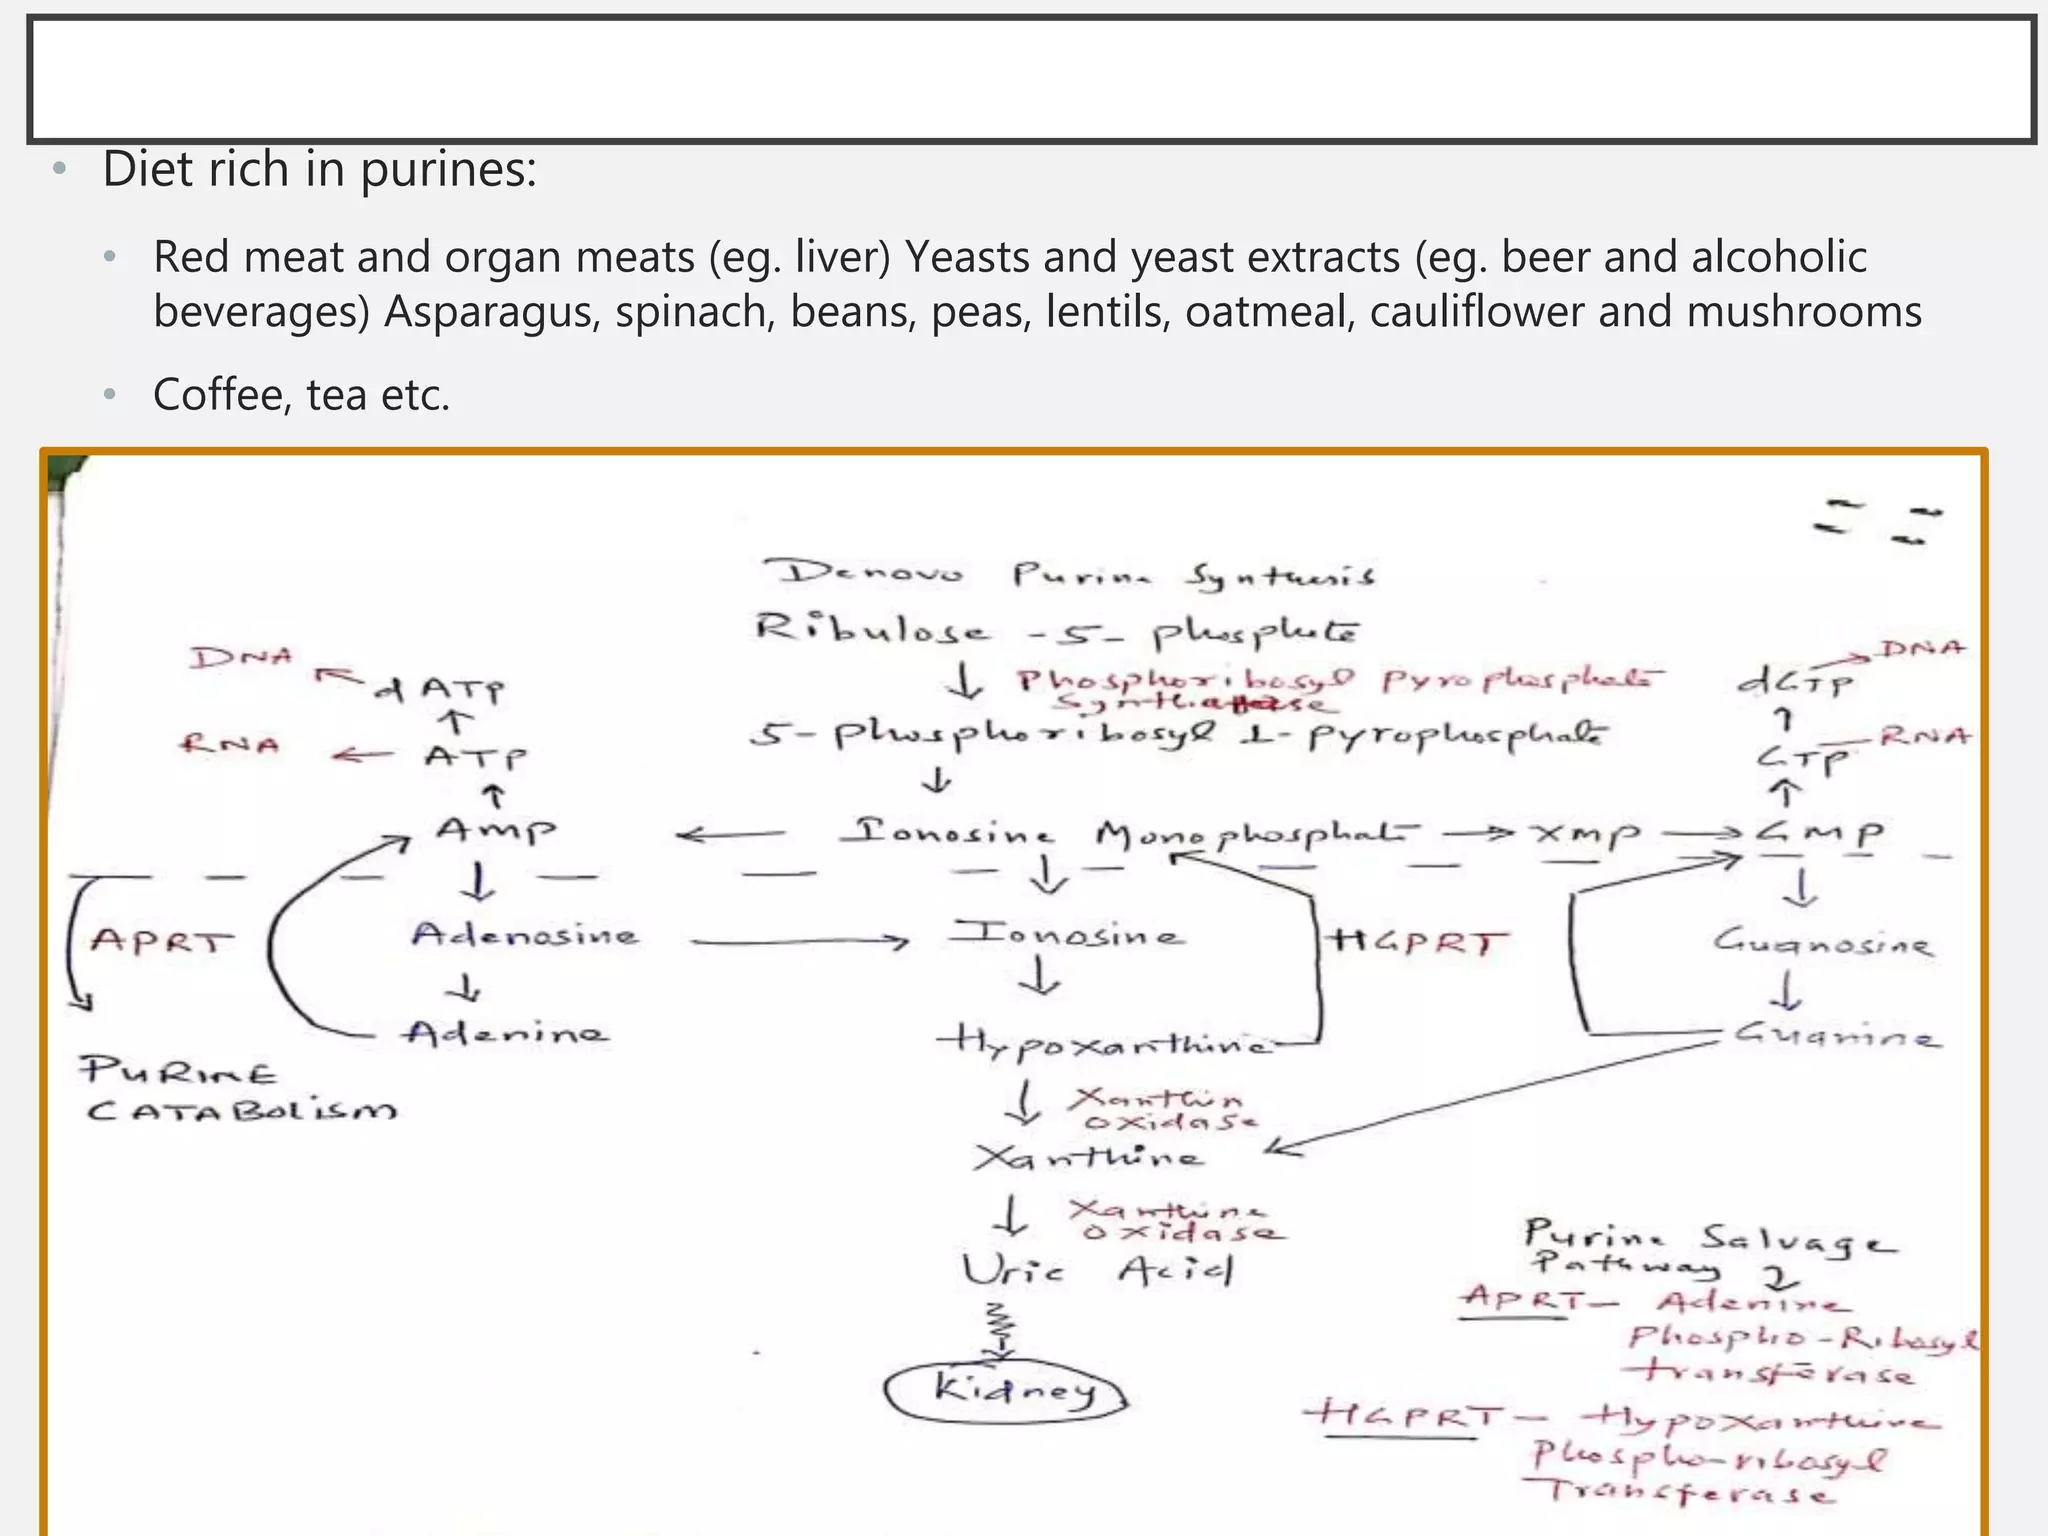 Diet rich in purines:
Red meat and organ meats (eg. liver) Yeasts and yeast extracts (eg. beer and alcoholic
beverages) Asparagus, spinach, beans, peas, lentils, oatmeal, cauliflower and mushrooms
Coffee, tea etc.
Denovo Purine Synthesis
Ribulose -5- phosphate
Phosphoribosyl pyrophosphate
Synthase
5-phosphoribosyl 1-pyrophosphate
DNA dATP
RNA ATP
dGTP DNA
GTP RNA
AMP Ionosine Monophosphat XMP GMP
APRT Adenosine Ionosine HGPRT Guanosine
Adenine Hypoxanthine Guanine
PURINE
CATABOLISM
Xanthin
oxidase
Xanthine
Xanthine
oxidase
Uric Acid
Kidney
Purine Salvage
Pathway
APRT - Adenine
Phospho-Ribosyl
transferase
HGPRT - Hypoxanthine
Phospho-ribosyl
Transferase